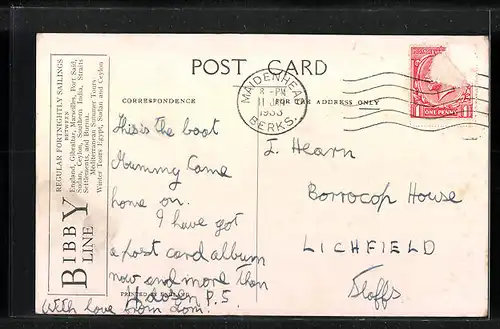 POST CARD
CORRESPONDENCE
FOR THE ADDRESS ONLY
MAIDENHEAD
8 - PM
11 JLY
1933
BERKS.
ONE PENNY
REGULAR FORTNIGHTLY SAILINGS
BETWEEN
England, Gibraltar, Marseilles, Port Said,
Sudan, Ceylon, Southern India, Straits
Settlements, and Burma.
Mediterranean Summer Tours
Winter Tours Egypt, Sudan and Ceylon
BIBBY
LINE
This is the boat
Mummy Came
home on.
I have got
a post card album
now and more than
4 dozen P.S
With love from Tom.
PRINTED IN ENGLAND
I. Hearn
Borrocop House
LICHFIELD
Staffs